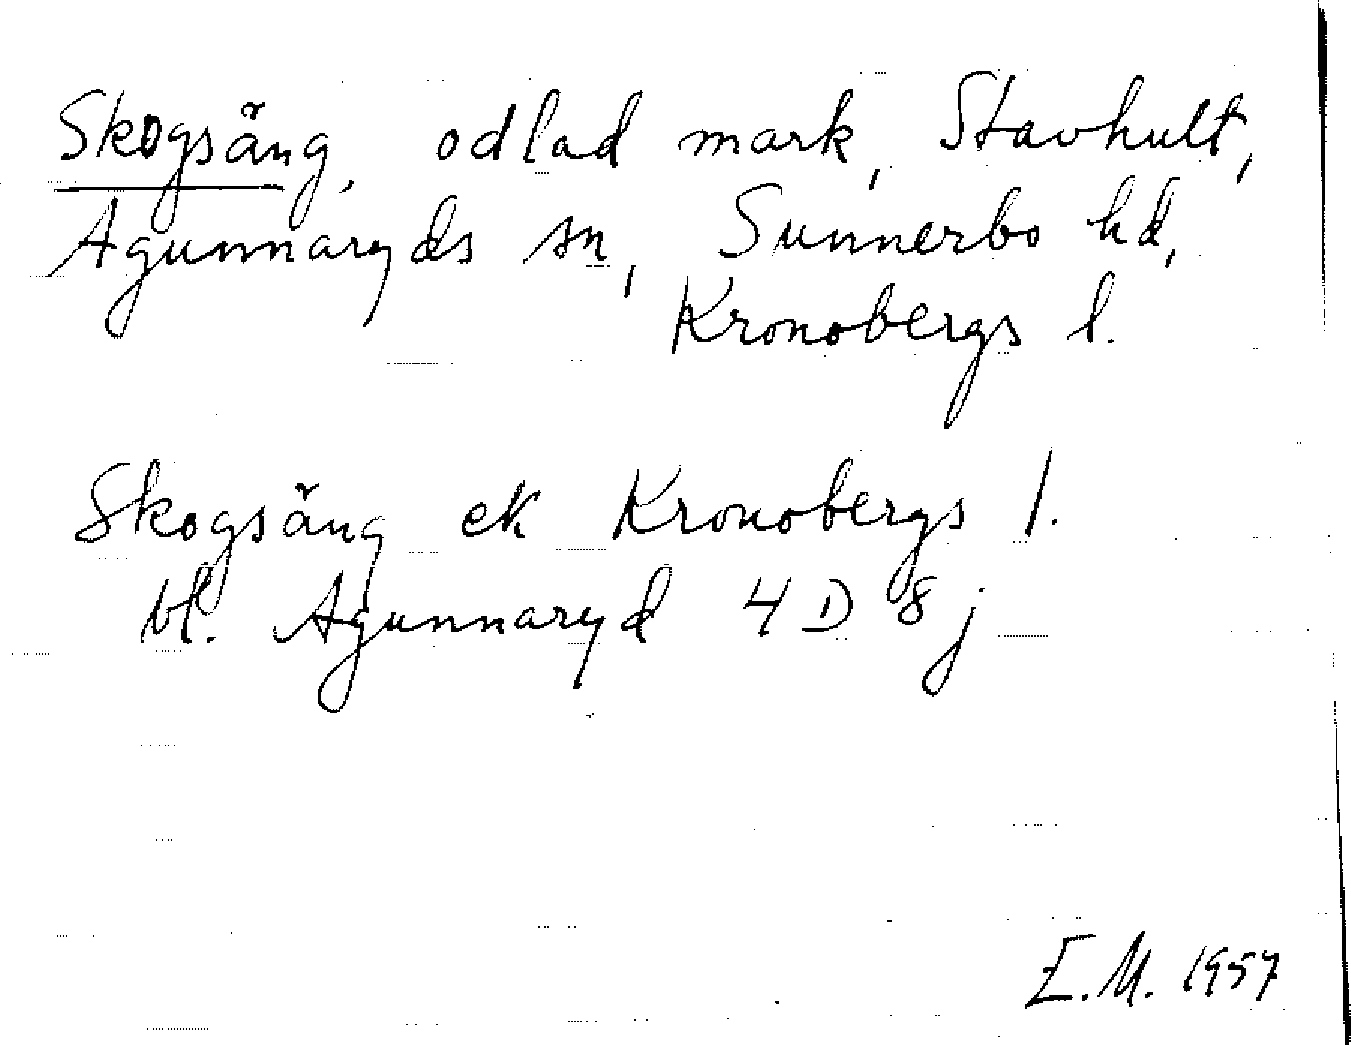 Skogsäng, odlad mark, Stavhult,
Agunnaryds sn, Sunnerbo hd,
Kronobergs l.
Skogsäng ek Kronobergs l.
bl. Agunnaryd 4 D 8 j
E.M. 1957